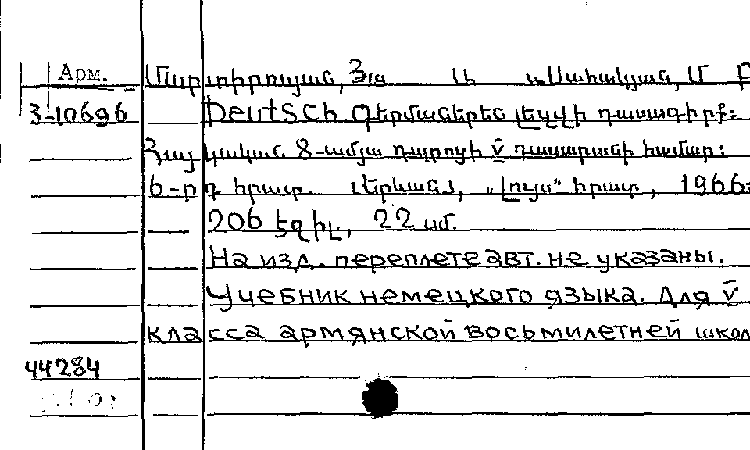 Арм.
Մարտիրոսյան, Յա և Սահակյան, Մ
3-10696
Deutsch Գերմաներեն լեզվի դասագիրք:
Հայկական 8-ամյա դպրոցի V դասարանի համար:
6-րդ հրատ. Երևան, „Լույս" հրատ, 1966:
206 էջ իլ, 22 սմ.
На изд. переплете авт. не указаны.
Учебник немецкого языка. Для V
класса армянской восьмилетней школ
44284